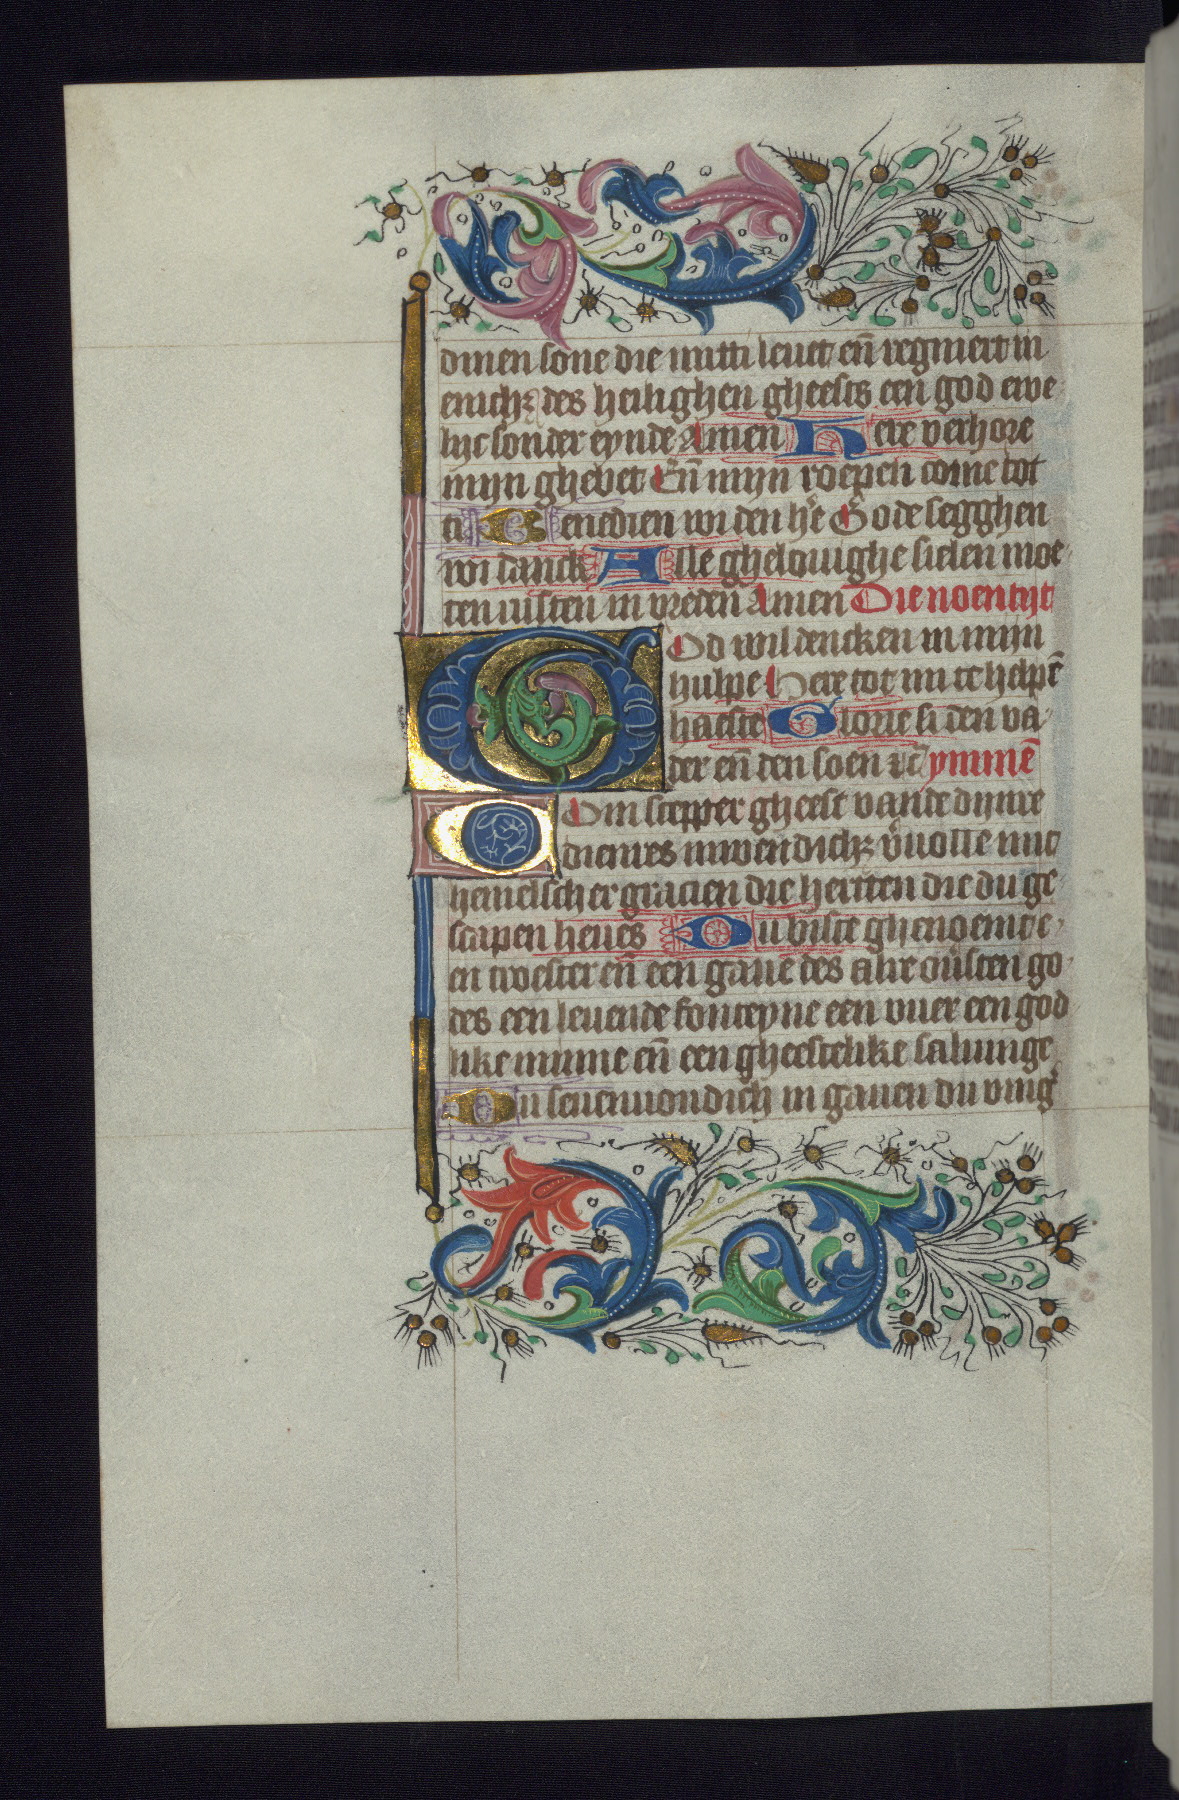 dinen sone die mitti leuet eñ regniert in
enich₃ des heilighen gheests een god ewe
lijc sonder eynde Amen Here verhore
mijn ghebet Eñ mijn roepen come tot
ti Benedien wi den hr̄e Gode segghen
wi danck Alle ghelouighe sielen moe
ten rusten in vredeñ Amen Die noentijt
God wil dencken in mijn
hulpe Here tot mi te helpē
haeste Glorie si den va
der eñ den soen ꝛc̄ ymmē
Com scepper gheest vande dijnre
dienres inwendich₃ v̄uolle mit
hemelscher gracien die herten die du ge
scapen heues Du biste ghenoemt e
en troester eñ een gaue des alre ouersten go
des een leuende fonteyne een vuer een god
like minne eñ een gheestelike saluinge
Du seuenuondich in gauen du ving̉